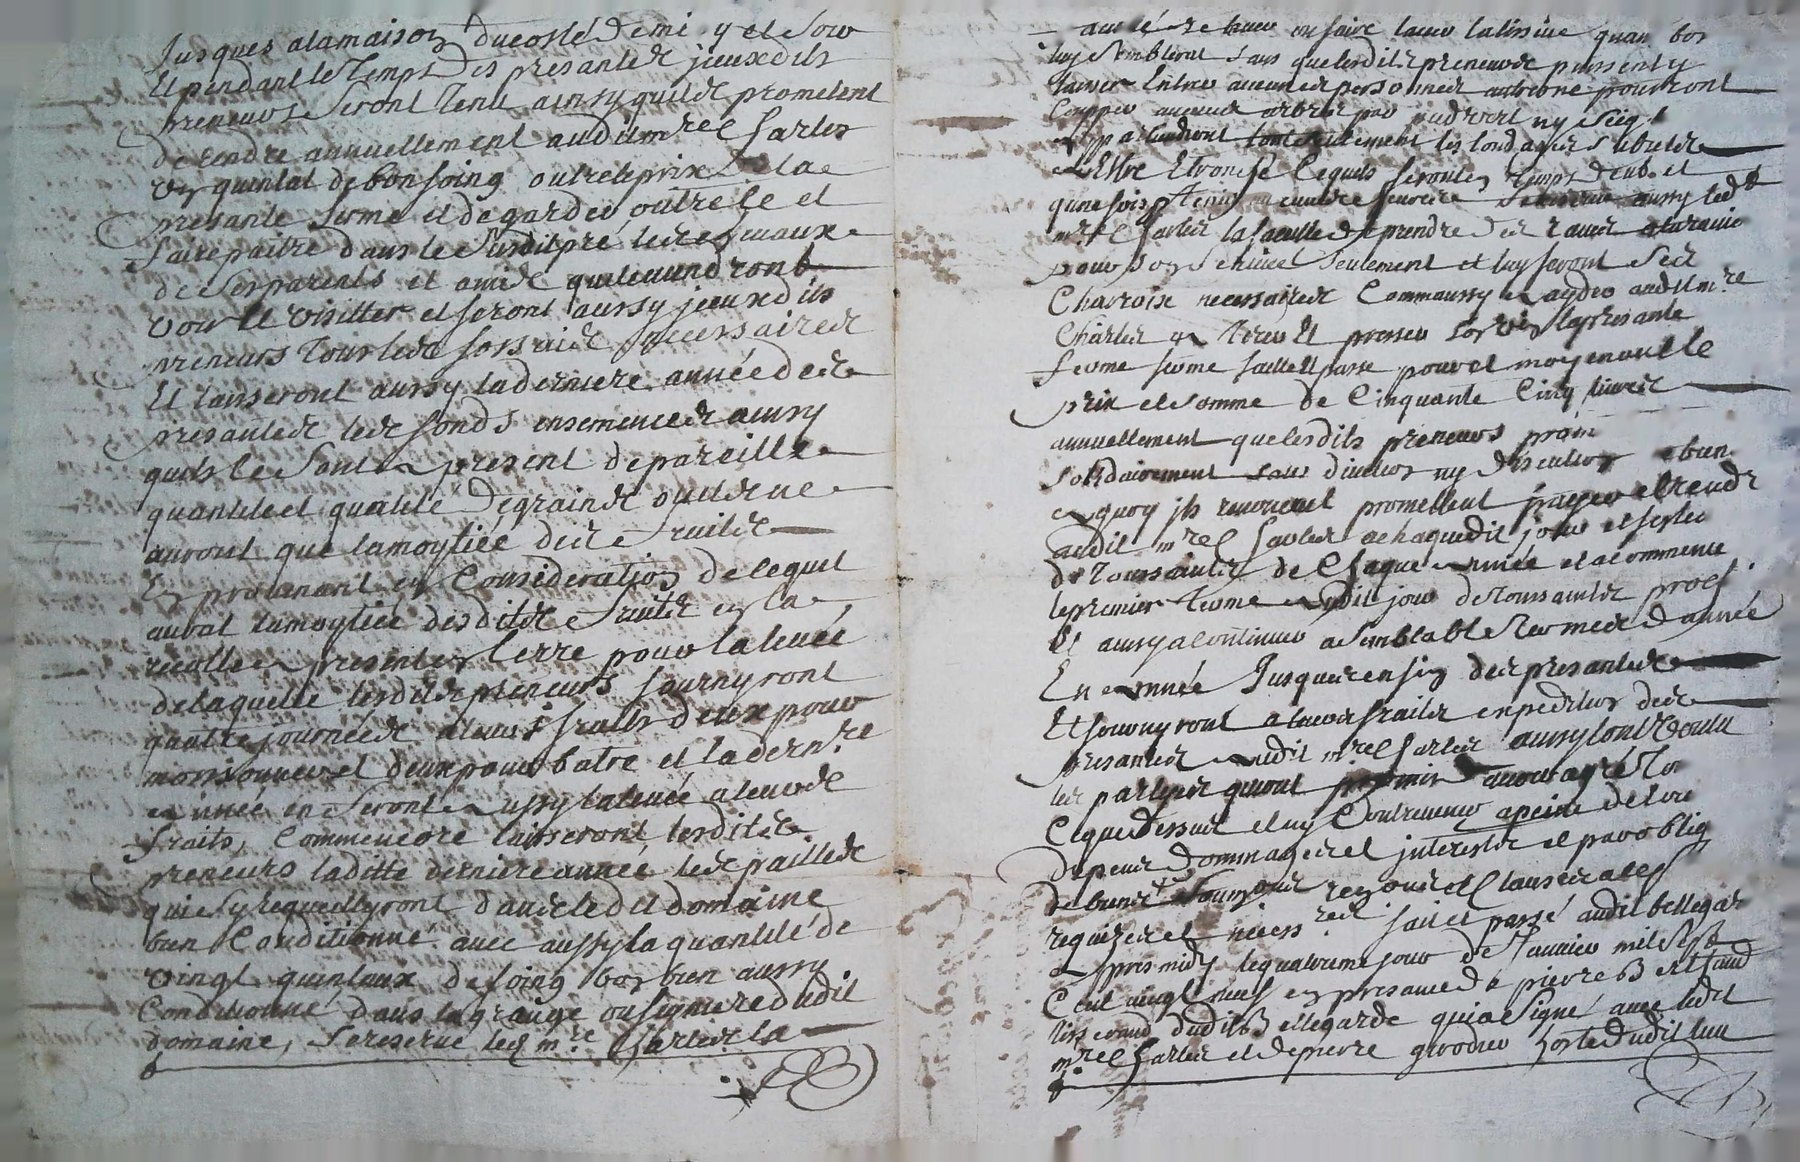 Jusques alamaison ducosté demi y et sow
Et pendant le Temps des presantes jceuxdits
preneurs seront Tenu ainsy quils promettent
de rendre annuellement audit mre Charles
un quintal de bon foing outre le prix dela
presante ferme et de garder outre ce et
faire paitre dans le susdit pré les chevaux
de ses parents et amis qui le viendront
voir et visitter et seront aussy jceuxdits
preneurs Tous les fossaics necessaires
Et laisseront aussy laderniere année des
presantes les fonds ensemencés ainsy
quils le sont a present de pareille
quantité et qualité de grains ou ils ne
auront que lamoytiée des fruits
En provenant en Consideration de lequel
auront lamoytiée desdits fruits en la
recolte a presant en terre pour la levée
de laquelle lesdits preneurs fournyront
quatre journées a leurs fraits deux pour
moissonner et deux pour batre et la dernre
année en feront aussy la levée a leurs
fraits, Comme encore laisseront lesdits
preneurs laditte derniere année les pailles
qui sy requeillyront dans ledit domaine
bien Conditionné avec aussy la quantité de
vingt quintaux de foing bon bien aussy
Conditionné dans la grange ou feigniere dudit
domaine, se reserve led mre Charles la
laver ou faire laver la lissive quan bon
luy semblera sans que lesdits preneurs puissent y
laver Entrer aucunes personnes
Coupper aucuns arbres par pied vert ny seiq
appartiendront tant seulement les
Estre Etronssé lequels seront en Temps deub et
qune fois aussy led
mre Charles la faculté de prendre des raves
pour son service seulement et luy feront ses
Charrois necessaires Comm aussy a ayder audit mre
Charles a tirer Et presser son vin la presante
ferme ferme faitte Et passé pour et moyenant le
prix et somme de Cinquante Cinq livres
annuellement que lesdits preneurs prom
solidairement sans division ny discution a bien
a quoy jls renoncent promettent payer et rendr
audit mre Charles a chaquedit jour et feste
de Toussaints de Chaque année et a commence
le premier terme audit jour de Toussaints proch
Et ainsy a continuer a semblables termes d année
En année Jusques en fin des presantes
Et fournyront a leurs fraits expedition des
presantes audit mre Charles ainsy lont voulu
les partyes quiont promis avoir agré
Ce que dessus et ny Contrevenir a peine de tou
depens dommages et jnterests et par oblig
de biens Renon et Clauses a ces
requises et necessres fait et passé audit bellegar
apres midy le quatrieme jour de Janvier mil sept
Cent vingt neuf en presance de pierre Berthaud
Tisserand dudit Bellegarde qui a signé avec ledit
mre Charles et de pierre hoste dudit lieu